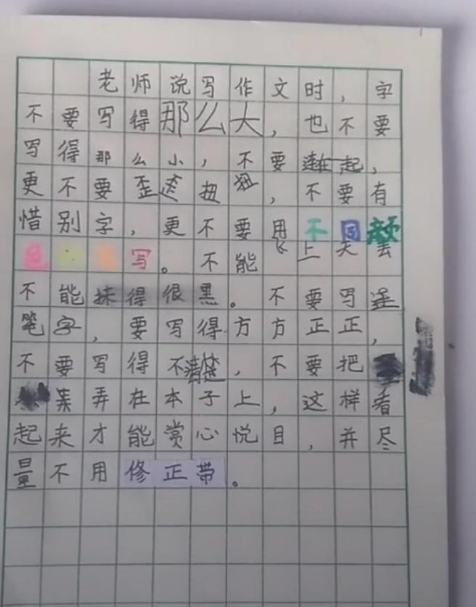 老师说写作文时，字
不要写得那么大，也不要
写得那么小，不要连在一起，
更不要歪歪扭扭，不要有
惜别字，更不要用不同颜
色的笔写。不能飞上天去
不能抹得很黑。不要写连
笔字，要写得方方正正，
不要写得不清楚，不要把
弄在本子上，这样看
起来才能赏心悦目，并尽
量不用修正带。